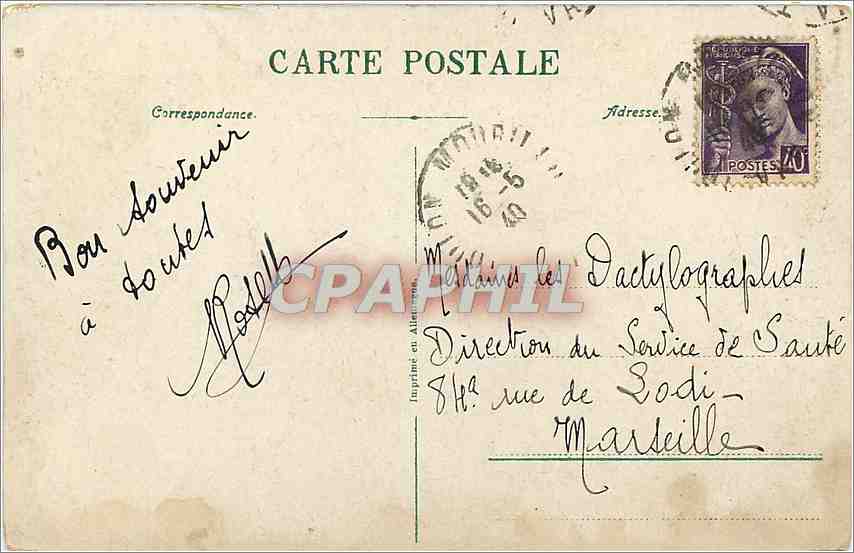 CARTE POSTALE
Correspondance.
Adresse.
RÉPUBLIQUE
FRANÇAISE
POSTES
40c
VA
TOULON MOURILLON
16-5
40
VAR
Bon souvenir
à toutes
CPAPHIL
Imprimé en Allemagne.
Mesdames les Dactylographes
Direction du Service de Santé
84a rue de Lodi-
Marseille